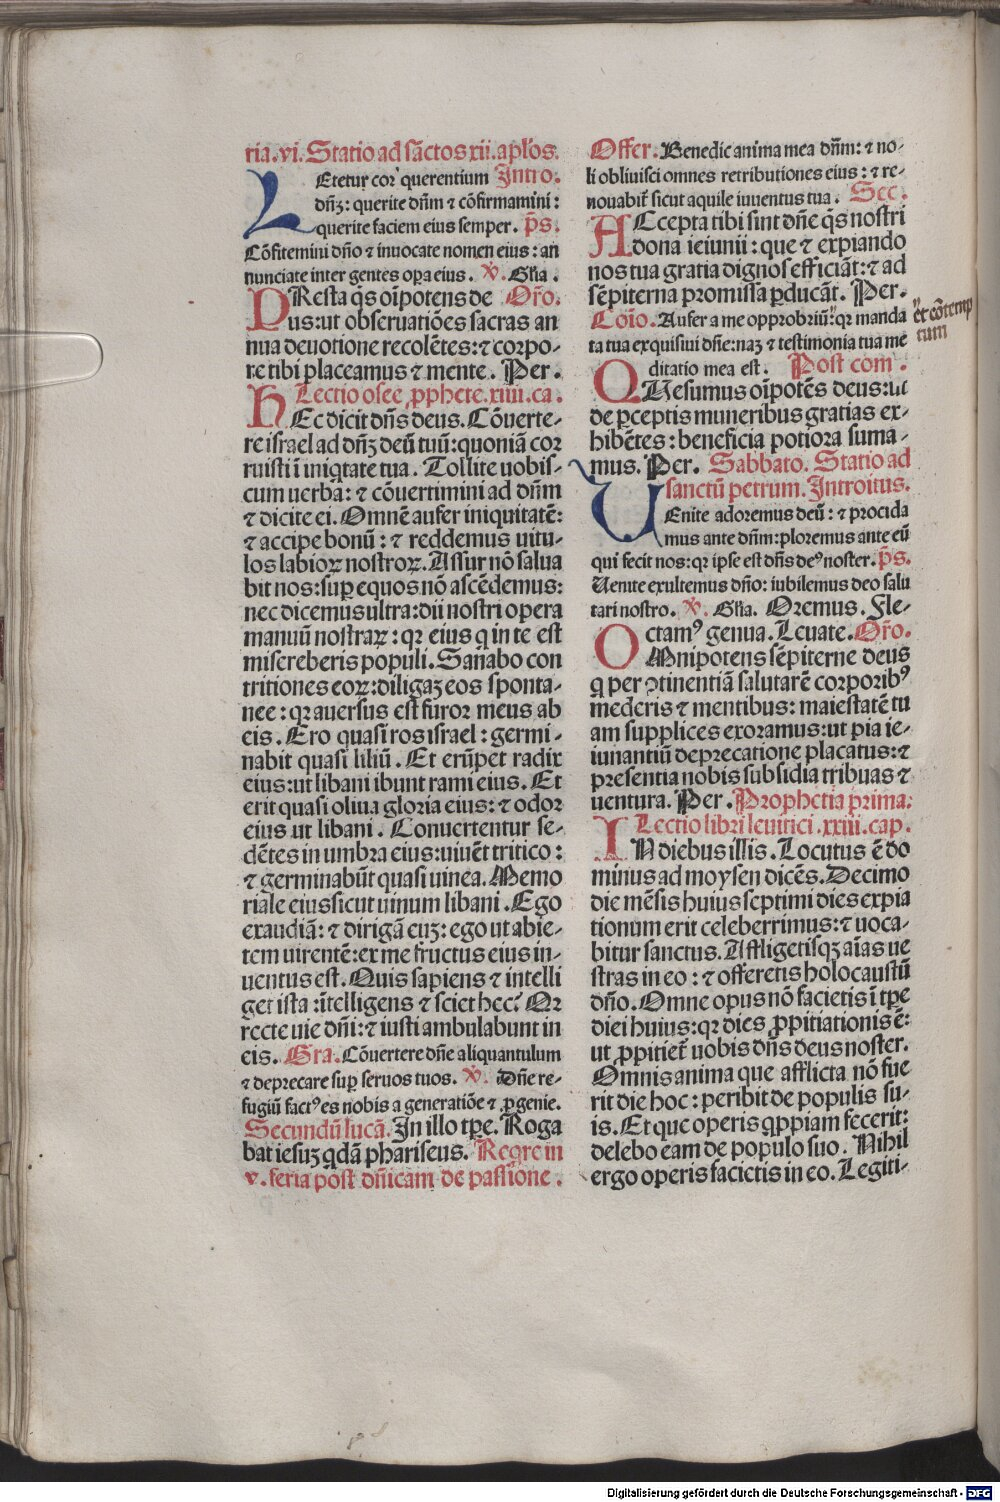 ria.vi. Statio ad sāctos xii. apl'os.
LEtetur cor querentium Intro.
dñꝫ: querite dñm ⁊ cōfirmamini:
querite faciem eius semper. p̄s.
Cōfitemini dño ⁊ inuocate nomen eius: an
nunciate inter gentes opa eius. ℣. Glīa.
PResta q̄s oīpotens de Orō.
us: ut obseruatiōes sacras an
nua deuotione recolētes: ⁊ corpo-
re tibi placeamus ⁊ mente. Per.
Lectio osee ꝓphete. xiiii. ca.
HEc dicit dñs deus. Cōuerte-
re israel ad dñꝫ deū tuū: quoniā cor
ruisti ī iniqtate tua. Tollite uobis-
cum uerba: ⁊ cōuertimini ad dñm
⁊ dicite ei. Omnē aufer iniquitatē:
⁊ accipe bonū: ⁊ reddemus uitu-
los labioꝝ nostroꝝ. Assur nō salua
bit nos: suꝑ equos nō ascēdemus:
nec dicemus ultra: dii nostri opera
manuū nostraꝝ: qꝛ eius q in te est
misereberis populi. Sanabo con
tritiones eoꝝ: diligaꝫ eos sponta-
nee: qꝛ auersus est furor meus ab
eis. Ero quasi ros israel: germi-
nabit quasi liliū. Et erūpet radix
eius: ut libani ibunt rami eius. Et
erit quasi oliua gloria eius: ⁊ odor
eius ut libani. Conuertentur se-
dētes in umbra eius: uiuēt tritico:
⁊ germinabūt quasi uinea. Memo
riale eius sicut uinum libani. Ego
exaudiā: ⁊ dirigā euꝫ: ego ut abie-
tem uirentē: ex me fructus eius in-
uentus est. Quis sapiens ⁊ intelli
get ista: ītelligens ⁊ sciet hec? Qꝛ
recte uie dñi: ⁊ iusti ambulabunt in
eis. Gra. Cōuertere dñe aliquantulum
⁊ deprecare suꝑ seruos tuos. ℣. Dñe re-
fugiū factꝰ es nobis a generatiōe ⁊ ꝓgenie.
Secundū lucā. In illo tꝑe. Roga
bat iesuꝫ qdā phariseus. Reqre in
v. feria post dñicam de passione.
Offer. Benedic anima mea dñm: ⁊ no-
li obliuisci omnes retributiones eius: ⁊ re-
nouabit' sicut aquile iuuentus tua. Sec.
ACcepta tibi sint dñe q̄s nostri
dona ieiunii: que ⁊ expiando
nos tua gratia dignos efficiāt: ⁊ ad
sēpiterna promissa ꝑducāt. Per.
Coīo. Aufer a me opprobriū: qꝛ manda
et cōtemp
tum
ta tua exquisiui dñe: naꝫ ⁊ testimonia tua me
ditatio mea est. Post com.
QUesumus oīpotēs deus: ut
de ꝑceptis muneribus gratias ex-
hibētes: beneficia potiora suma-
mus. Per. Sabbato. Statio ad
sanctū petrum. Introitus.
UEnite adoremus deū: ⁊ procida
mus ante dñm: ploremus ante eū
qui fecit nos: qꝛ ipse est dñs deꝰ noster. p̄s.
Uenite exultemus dño: iubilemus deo salu
tari nostro. ℣. Glīa. Oremus. Fle-
ctamꝰ genua. Leuate. Orō.
OMnipotens sēpiterne deus
q per ↄtinentiā salutarē corporibꝰ
mederis ⁊ mentibus: maiestatē tu
am supplices exoramus: ut pia ie-
iunantiū deprecatione placatus: ⁊
presentia nobis subsidia tribuas ⁊
uentura. Per. Prophetia prima:
Lectio libri leuitici. xxiii. cap.
IN diebus illis. Locutus ē do
minus ad moysen dicēs. Decimo
die mēsis huius septimi dies expia
tionum erit celeberrimus: ⁊ uoca-
bitur sanctus. Affligetisqꝫ aīas ue
stras in eo: ⁊ offeretis holocaustū
dño. Omne opus nō facietis ī tꝑe
diei huius: qꝛ dies ꝓpitiationis ē:
ut ꝓpitiet' uobis dñs deus noster.
Omnis anima que afflicta nō fue
rit die hoc: peribit de populis su-
is. Et que operis qppiam fecerit:
delebo eam de populo suo. Nihil
ergo operis facietis in eo. Legiti-
Digitalisierung gefördert durch die Deutsche Forschungsgemeinschaft - DFG